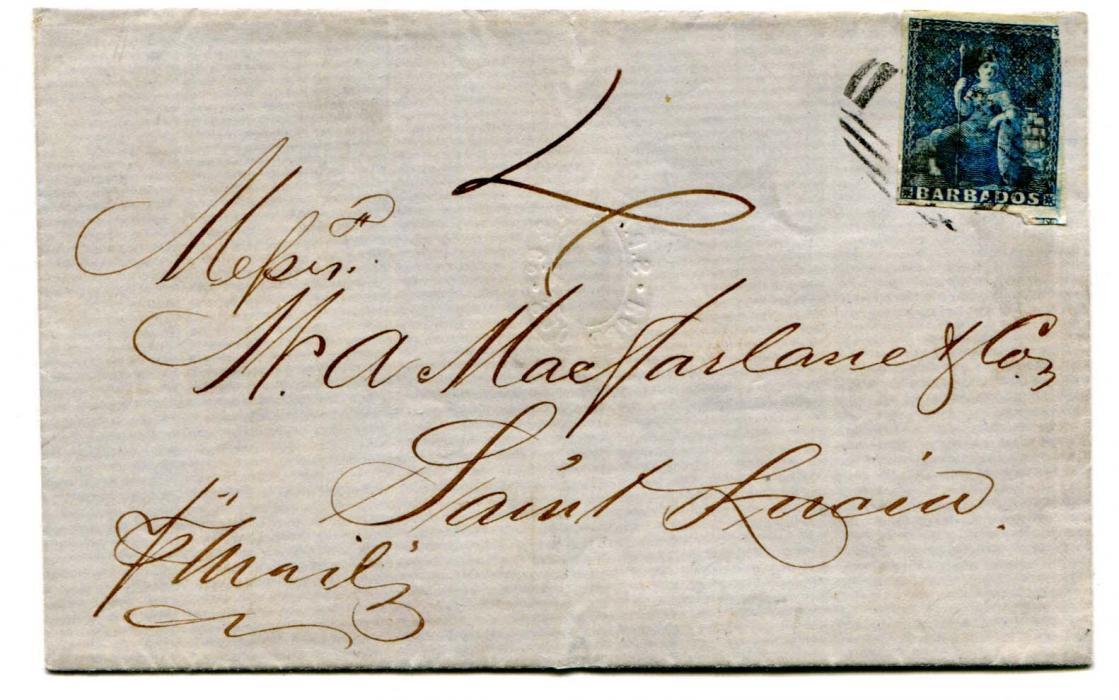 BARBADOS
Messrs.
W. A Macfarlane & Co,
Saint Lucia.
"Mail"